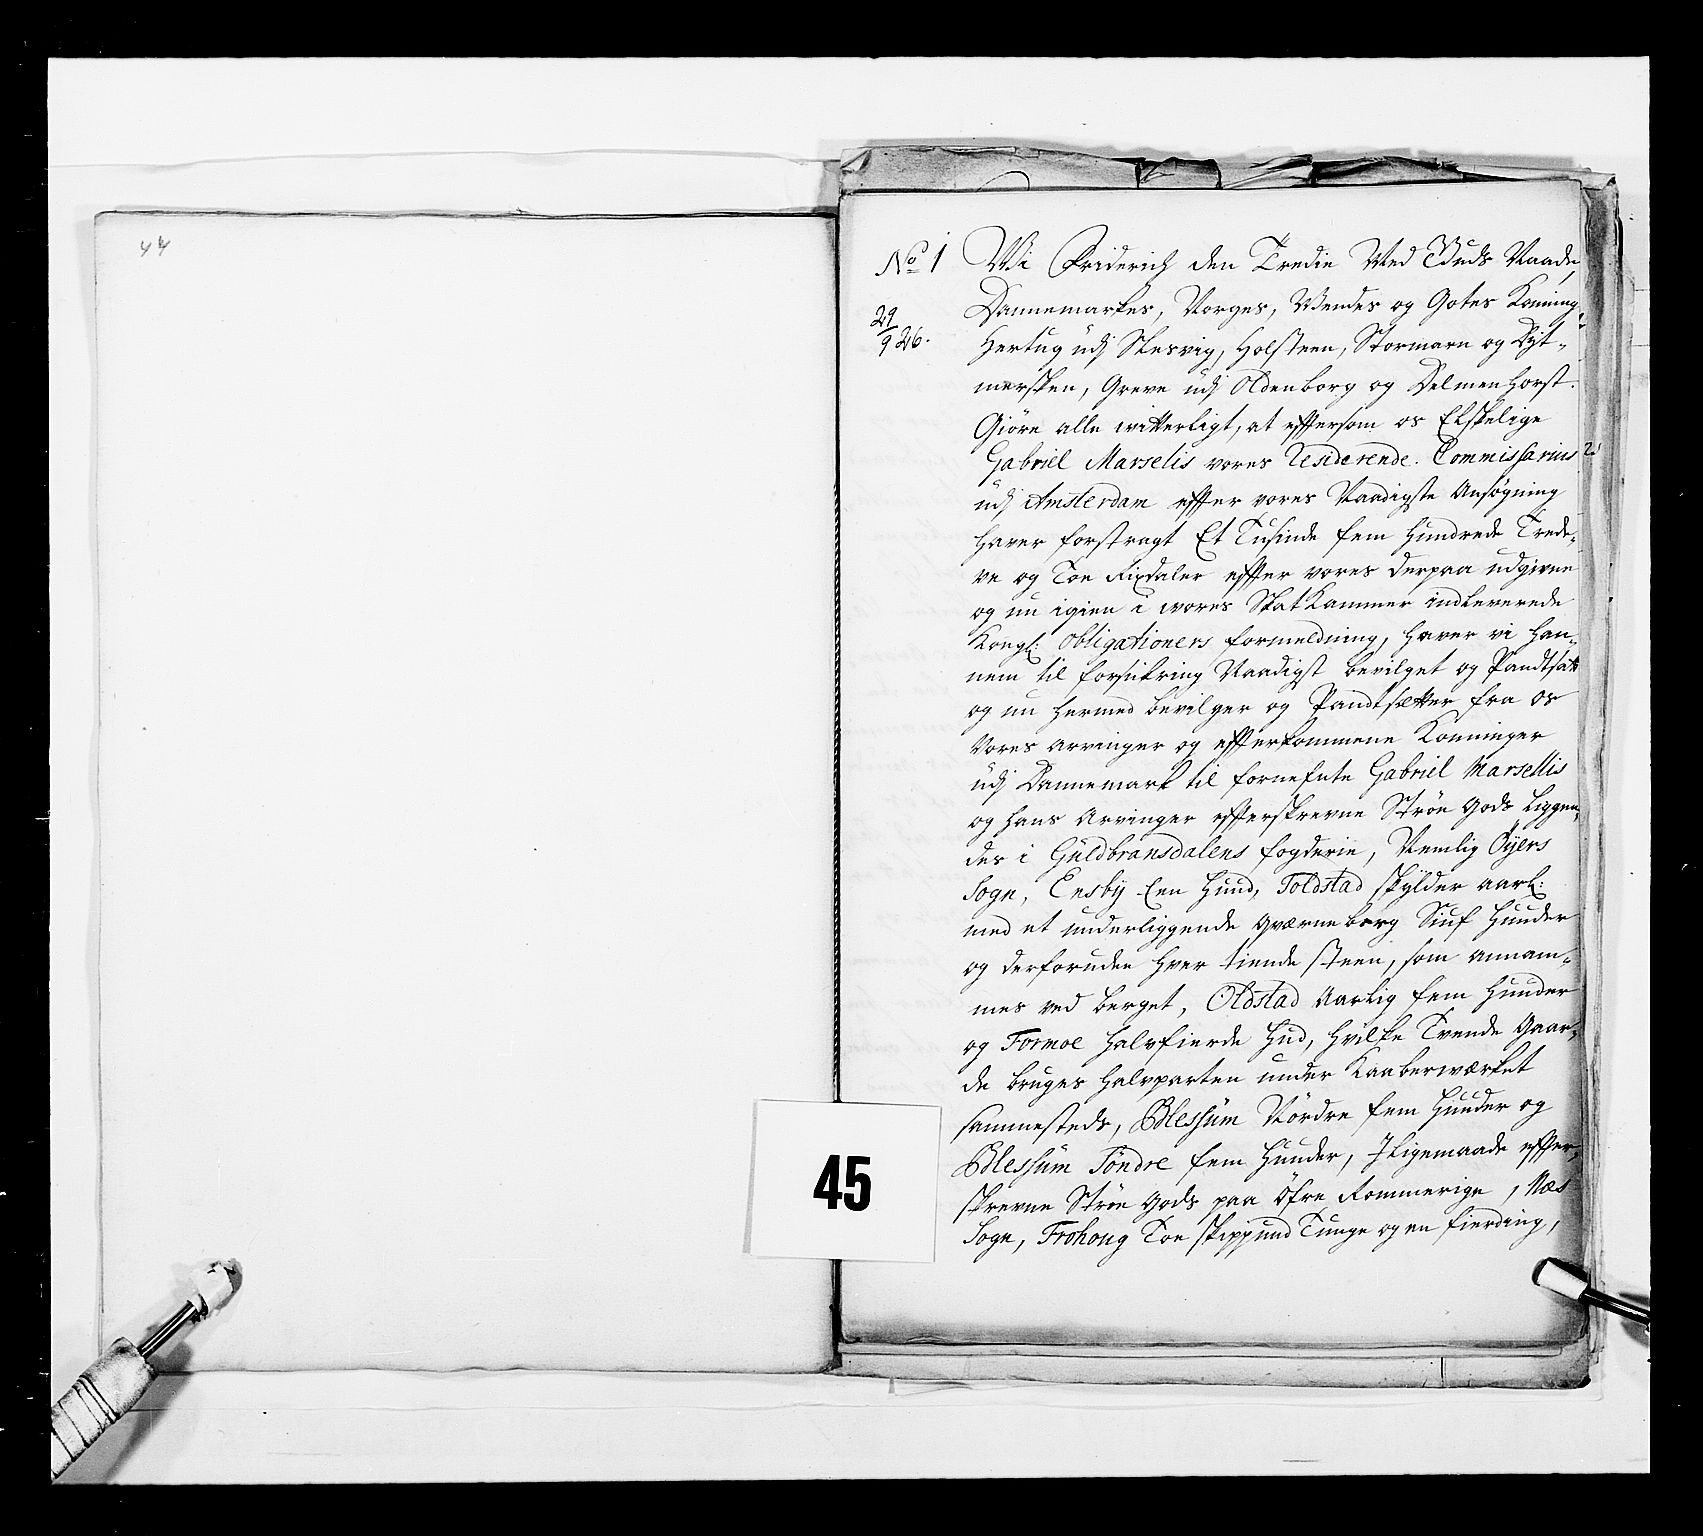 44
No 1 Wi Friderich den Tredie Med Guds Naade,
Dannemarkes, Norges, Wendes og Gotes Konning,
29/9 26.
Hertug udj Slesvig, Holsteen, Stormarn og Dyt-
mersken, Greve udj Oldenborg og Delmenhorst.
Giöre alle witterligt, at effersom os Elskelige
Gabriel Marselis vores Residerende Commissarius
udj Amsterdam effter vores Naadigste Ansøgning
haver forstragt Et Tusinde fem Hundrede Trede-
ve og Toe Rixdaler effter vores derpaa udgivne
og nu igien i wores Skatkammer indleverede
Kongl: Obligationers formeldning, haver vi han-
nem til forsikring Naadigst bevilget og Pandtsatt
og nu hermed bevilger og Pandtsætter fra os
Vores arvinger og effterkommene Konninger
udj Dannemark til fornefnte Gabriel Marsellis
og hans Arvinger effterskrevne Strøe Gods liggen-
des i Guldbransdalens fogderie, Nemlig Öyers
Sogn, Ensbÿ Een hund, Toldstad skylder aarl:
med et underliggende qværneberg Siuf Huuder
og derforuden hver tiende steen, som annam-
mes ved berget, Oldstad Aarlig fem Huuder
og Formoe halvfierde hud, hvilke Tvende Gaar-
de bruges halvparten under Kaaberwærket
sammesteds, Blessüm Nördre fem Huuder og
Blessüm Söndre fem Huuder, Jligemaade effter-
skrevne Strøe Gods paa Öfre Rommerige, Næs
Sogn, Frohoug Toe skippund Tunge og en fierding,
45